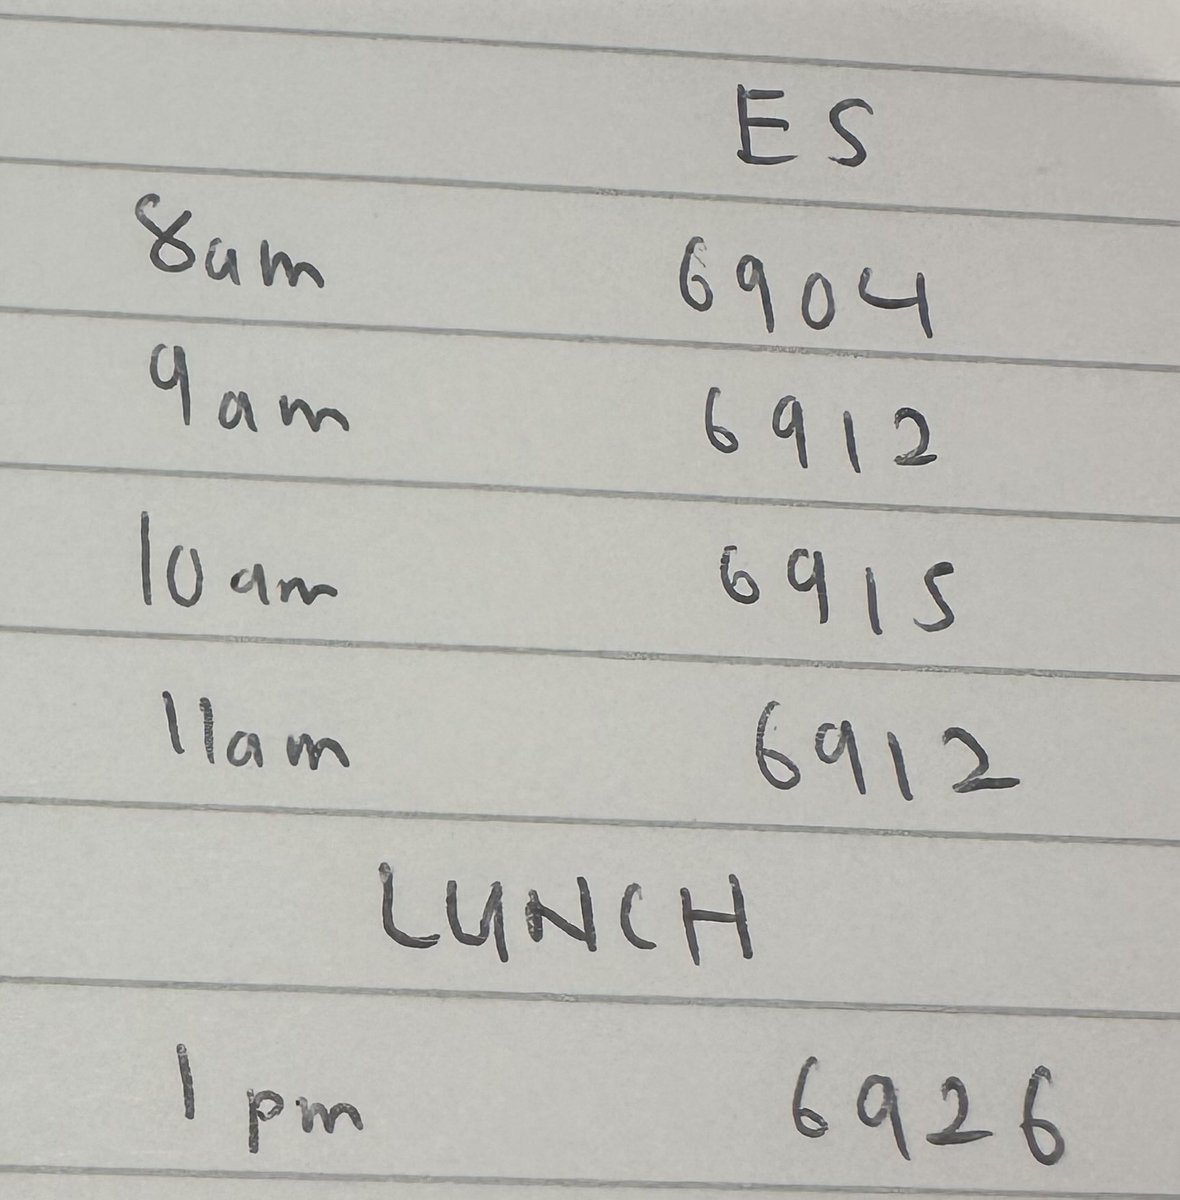 ES
8am 6904
9am 6912
10am 6915
11am 6912
LUNCH
1pm 6926